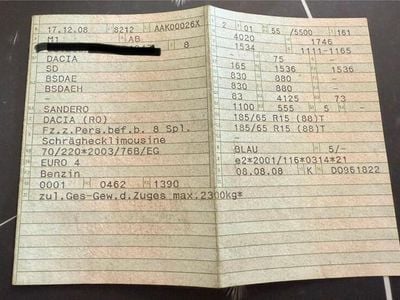 17.12.08 8212 AAK00026X
M1 AB
8
DACIA
SD
BSDAE
BSDAEH
-
SANDERO
DACIA (RO)
Fz.z.Pers.bef.b. 8 Spl.
Schräghecklimousine
70/220*2003/76B/EG
EURO 4
Benzin
0001 0462 1390
zul.Ges-Gew.d.Zuges max.2300kg*
2 01 55 /5500 161
4020 1746
1534 1111-1165
- 75 -
165 1536 1536
830 880 -
830 880 -
83 4125 73
1100 555 5 -
185/65 R15 (88)T
185/65 R15 (88)T
-
BLAU 5/-
e2*2001/116*0314*21
08.08.08 K DO961822